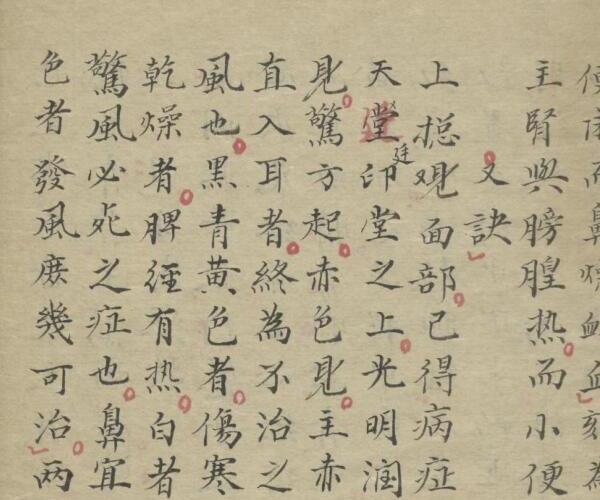 而鼻燥衄血刻為
主腎與膀胱热而小便
又訣
上摠观面部已得病症
天堂廷印堂之上光明润
見驚方起赤色見主赤
直入耳者終為不治之
風也黑青黄色者傷寒
乾燥者脾經有热白者
驚風必死之症也鼻宜
色者發風庶幾可治两